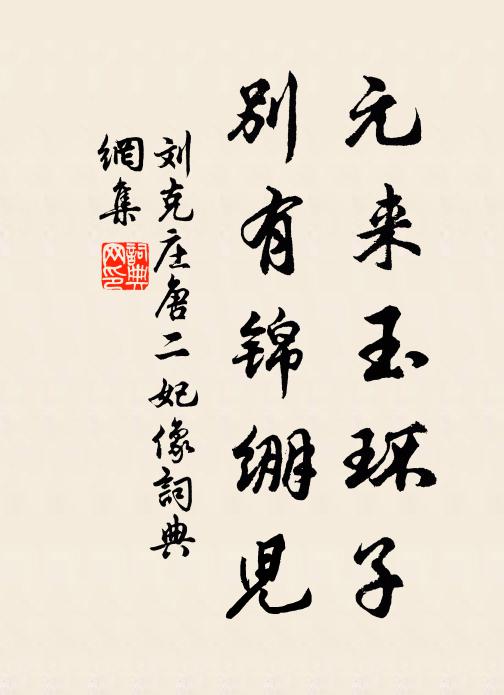 元来玉环子
别有锦绷児
刘克庄唐二妃像詞典
網集
詞典网印